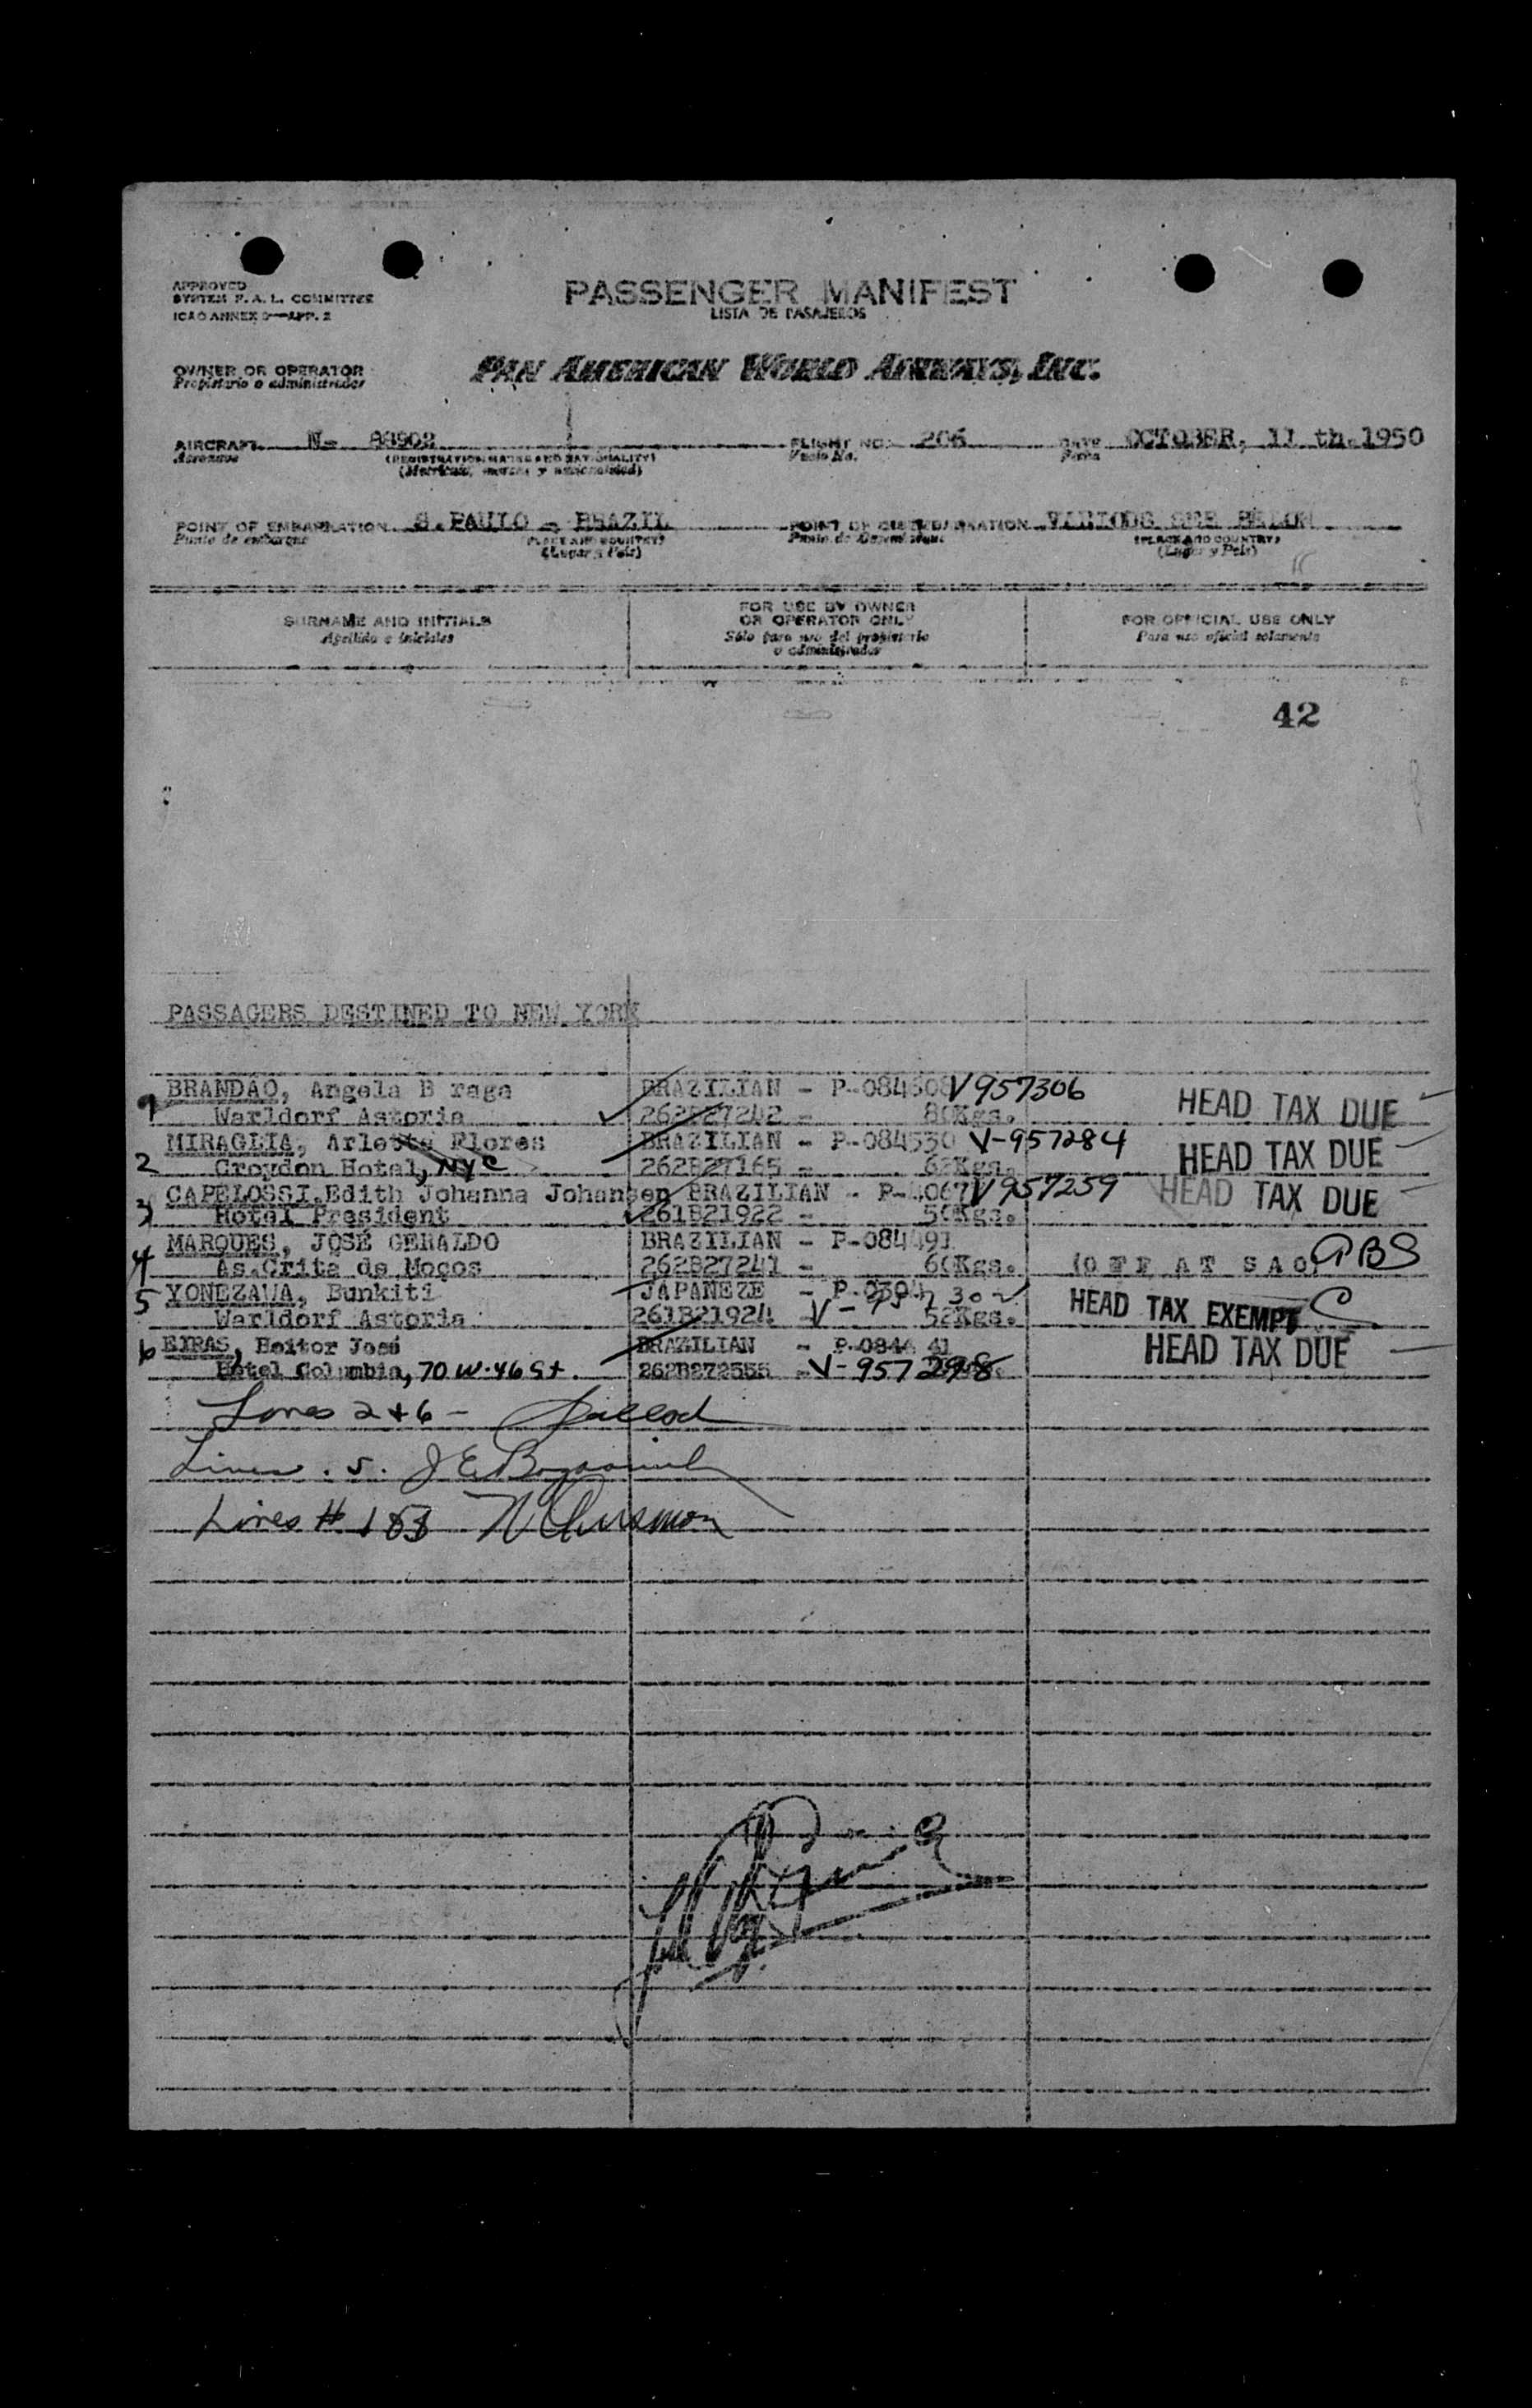 APPROVED
SYSTEM F. A. L. COMMITTEE
ICAO ANNEX 9—APP. 2
PASSENGER MANIFEST
LISTA DE PASAJEROS
OWNER OR OPERATOR
Propietario o administrador
PAN AMERICAN WORLD AIRWAYS, INC.
AIRCRAFT N- 88902 FLIGHT NO. 206 DATE OCTOBER, 11 th.1950
Aeronave (REGISTRATION MARKS AND NATIONALITY) Vuelo No. Fecha
(Matrícula, marcas y nacionalidad)
POINT OF EMBARKATION S.PAULO - BRAZIL POINT OF DISEMBARKATION VARIOUS SEE BELOW
Punto de embarque (PLACE AND COUNTRY) Punto de Desembarque (PLACE AND COUNTRY)
(Lugar y País) (Lugar y País)
SURNAME AND INITIALS
Apellido e iniciales
FOR USE BY OWNER
OR OPERATOR ONLY
Sólo para uso del propietario
o administrador
FOR OFFICIAL USE ONLY
Para uso oficial solamente
42
PASSAGERS DESTINED TO NEW YORK
BRANDÃO, Angela B raga BRAZILIAN - P-084508 V957306 HEAD TAX DUE
Warldorf Astoria 262B27242 - 80Kgs.
2 MIRAGLIA, Arlette Flores BRAZILIAN - P-084530 V-957284 HEAD TAX DUE
Croydon Hotel, NYC 262B27165 - 62Kgs.
3 CAPELOSSI,Edith Johanna Johansen BRAZILIAN - P-4067 V957259 HEAD TAX DUE
Hotel President 261B21922 - 50Kgs.
4 MARQUES, JOSÉ GERALDO BRAZILIAN - P-084491
As.Crita de Moços 262B27241 - 60Kgs. (OFF AT SAO) ABS
5 YONEZAWA, Bunkiti JAPANEZE - HEAD TAX EXEMPT C
Warldorf Astoria 261B21924 V- 52Kgs.
6 EIRAS, Heitor José BRAZILIAN - P-0846 41 HEAD TAX DUE
Hotel Columbia, 70 W. 46 St. 262B272555 - V-957298
Lines 2+6 -
Lines . 5. J E
Lines # 1&3